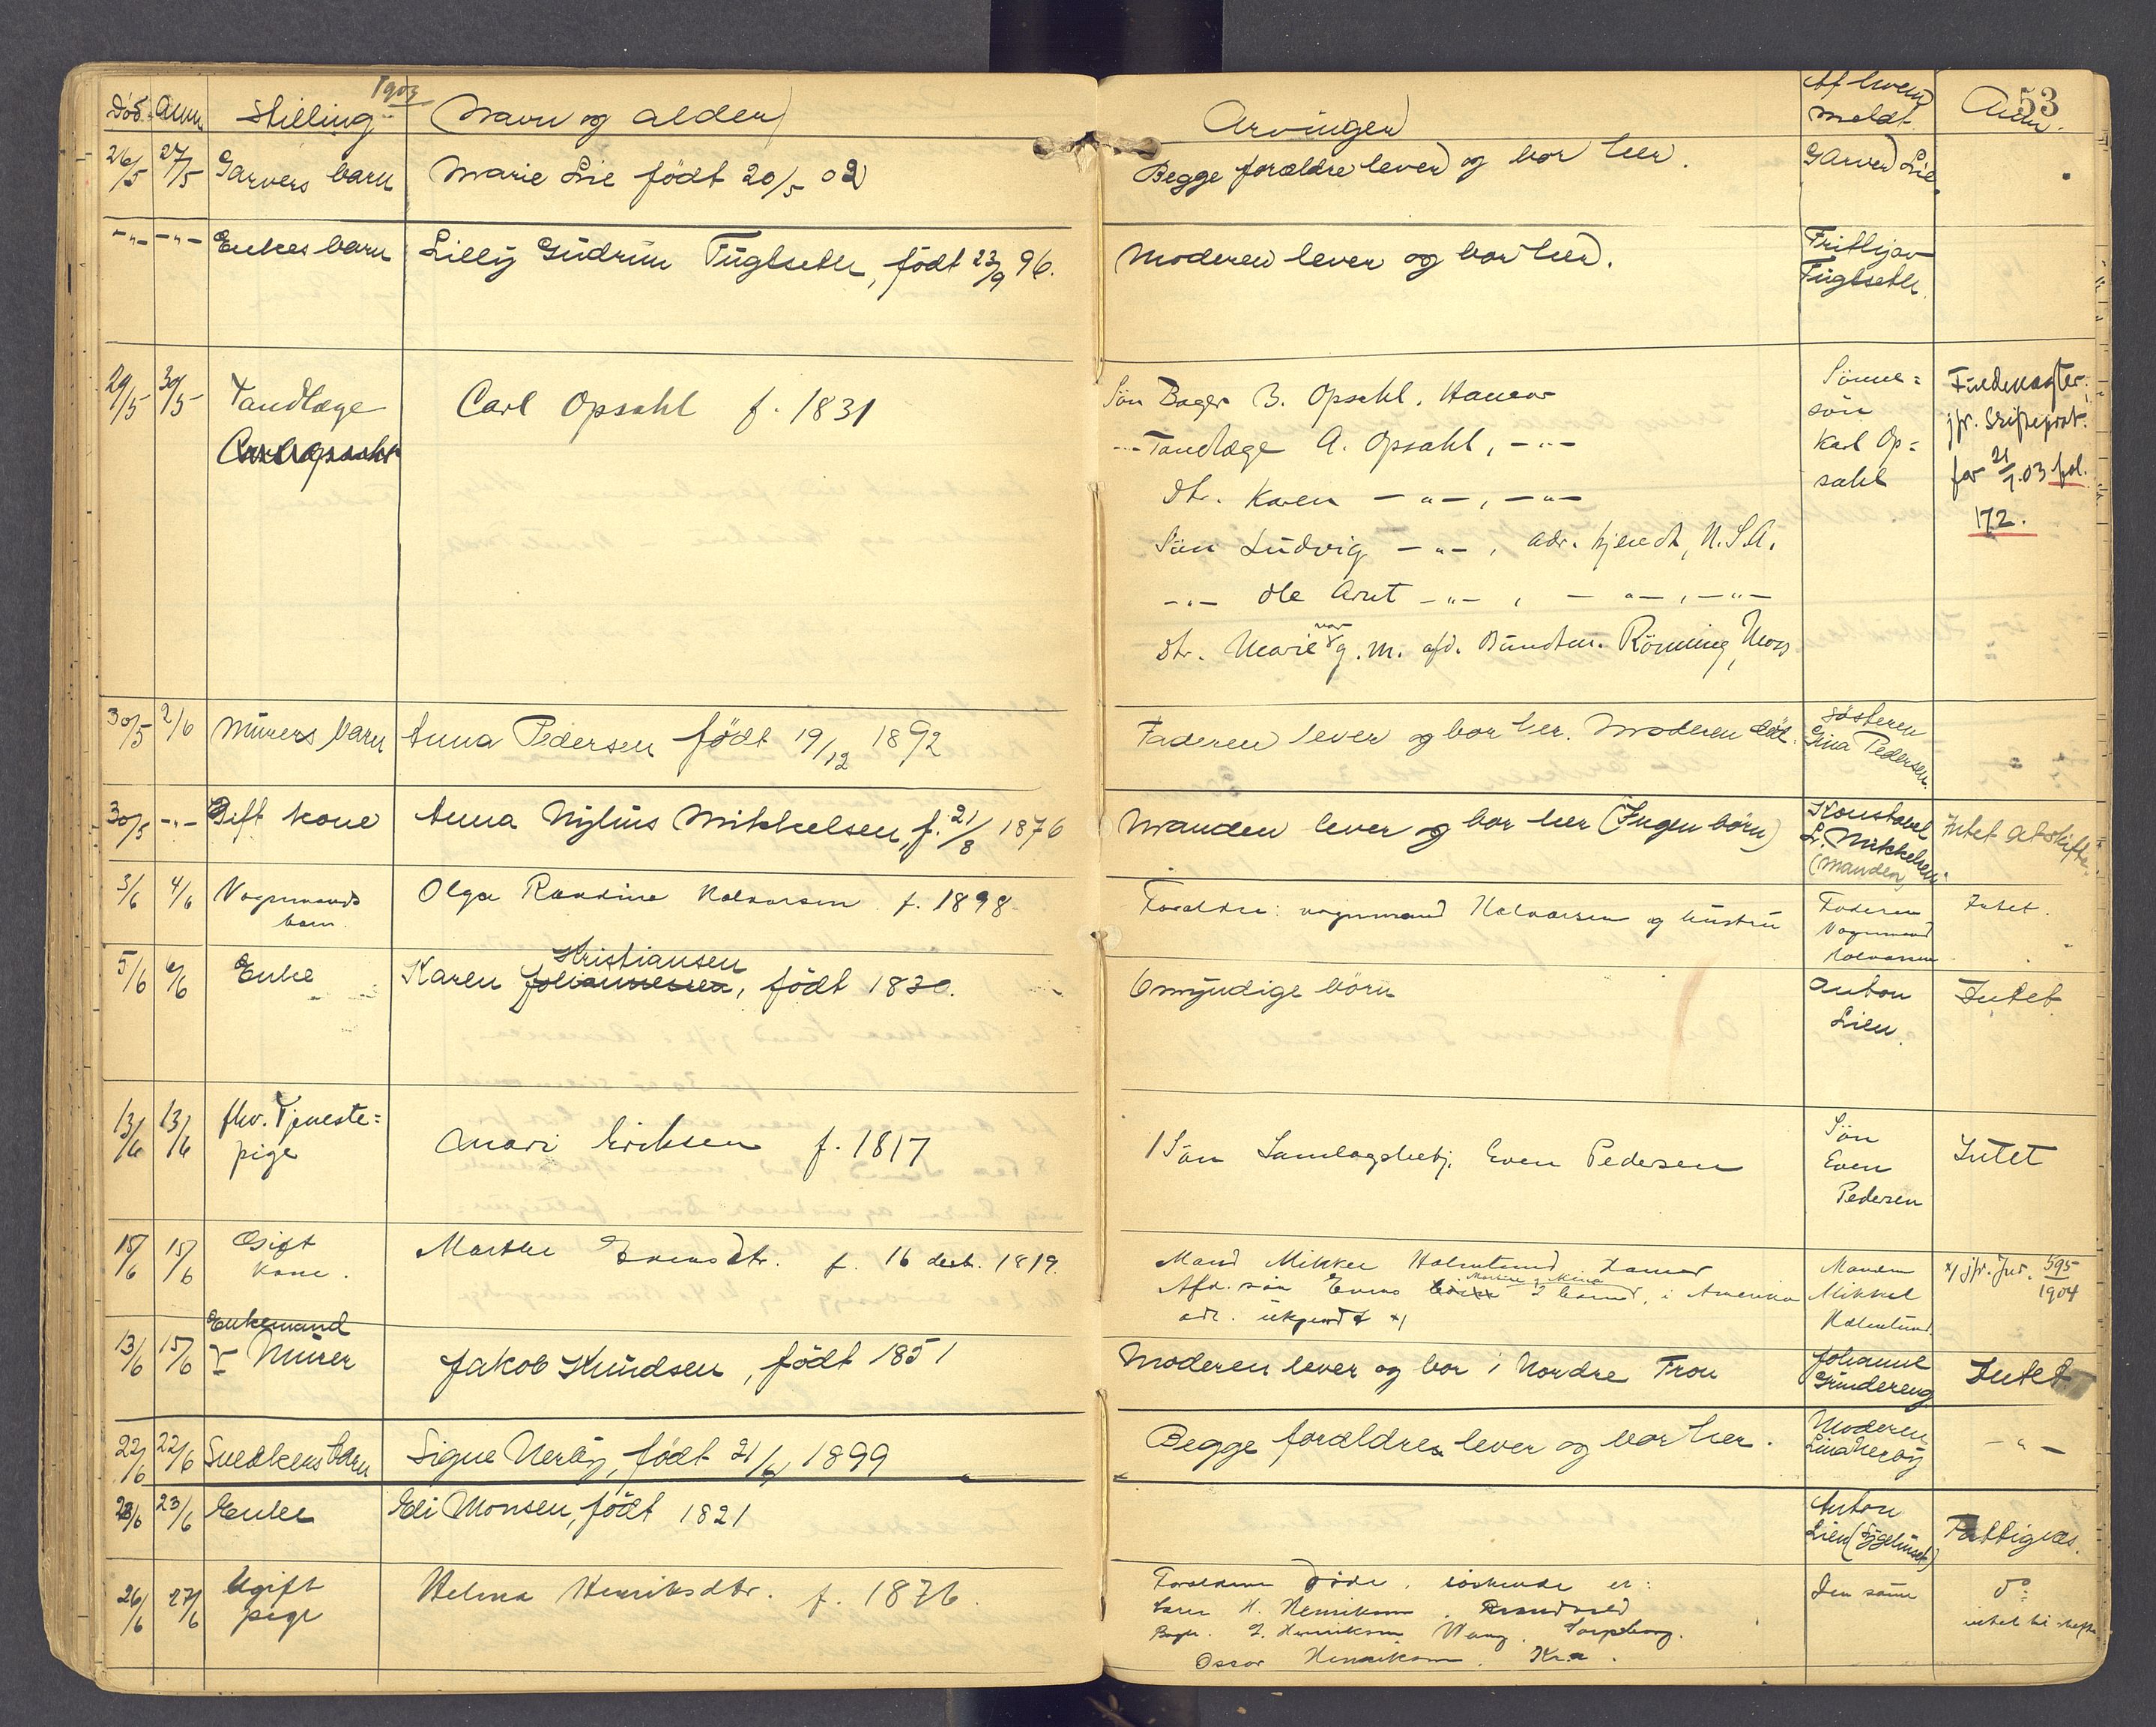 1903
53
Död Anm Stilling Navn og alder Arvinger Af hvem meldt Anm.
26/5 27/5 Garvers barn Marie Lie födt 20/5 02 Begge forældre lever og bor her. Garver Lie
-"- -"- Enkes barn Lilly Gudrun Fuglseth, födt 23/9 96. Moderen lever og bor her. Frithjov Fuglseth.
29/5 30/5 Tandlæge Carl Opsahl f. 1831
Sön Bager B. Opsahl. Hamar
-"- Tandlæge A. Opsahl, -"-
Dtr. Karen -"-, -"-
Sön Ludvig -"-, adr. kjendt, N.S.A.
-"- Ole Arnt -"-, -"-, -"-
Dtr. Marie var g.m. afd. Buntm. Rönning, Moss
Sönne=
sön
Karl Op=
sahl
jfr. Skifteprot.
for 21/7.03 fol.
172.
30/5 2/6 Murers barn Anna Pedersen födt 19/12 1892 Faderen lever og bor her. Moderen död. Sösteren Gina Pedersen
30/5 -"- Gift kone Anna Nylius Mikkelsen, f. 21/8 1876 Manden lever og bor her (Ingen börn) Konstabel L. Mikkelsen (Manden) Intet at skifte
3/6 4/6 Vognmands barn. Olga Randine Halvorsen f. 1898. Forældre: vognmand Halvorsen og hustru Faderen Vognmand Halvorsen Intet.
5/6 6/6 Enke Karen Johannessen Kristiansen, födt 1830. 6 myndige börn Anton Lien. Intet.
13/6 13/6 fhv. Tjeneste=
pige Mari Eriksen f. 1817 1 Sön Samlagsbetj. Even Pedersen Sön
Even
Pedersen Intet
15/6 15/6 Gift
kone. Marthe Evensdtr. f. 16 decb. 1819.
Mand Mikkel Holmlund Hamar
Afd. sön Evens 2 börn Martin og Mina, i Amerika
adr. ukjendt x)
Manden
Mikkel
Holmlund.
x) jfr. Jur. 595/1904
13/6 15/6 Enkemand
Murer Jakob Knudsen, födt 1851 Moderen lever og bor i Nordre Fron Johanne Grindereng Intet
22/6 22/6 Snedkers barn Signe Nerby, födt 21/6 1899 Begge forældre lever og bor her. Moderen Lina Nerby -"-
23/6 23/6 Enke Eli Monsen, födt 1821 Anton
Lien (Sygehuset) Fattigvæs.
26/6 27/6 Ugift
pige Helma Henriksdtr. f. 1876.
Forældrene Döde. Söskende er:
H. Henriksen.
Henriksen Sarpsborg.
Oscar Henriksen. Kr.a.
Den samme Do
intet til skifte